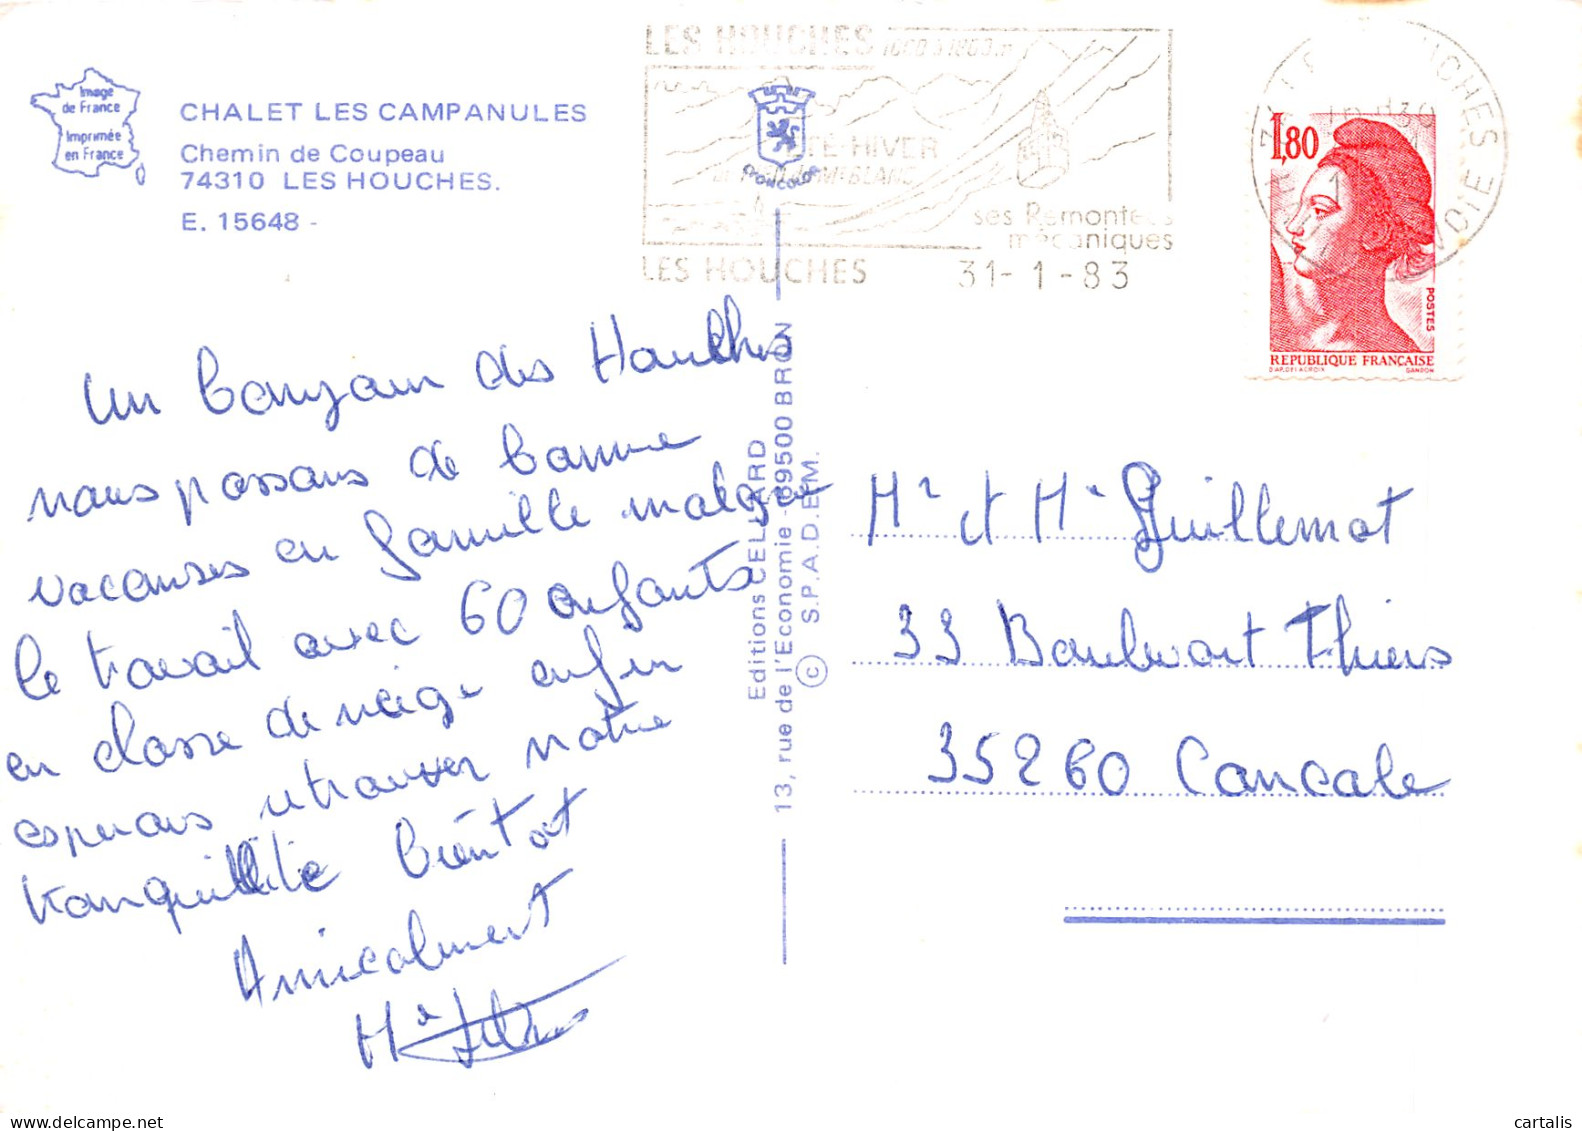 Image
de France
Imprimée
en France
CHALET LES CAMPANULES
Chemin de Coupeau
74310 LES HOUCHES.
E. 15648 -
LES HOUCHES 1000 à 1860 m
ETE-HIVER
ses Remontées
mécaniques
LES HOUCHES 31-1-83
1,80
POSTES
REPUBLIQUE FRANÇAISE
D'AP. DELACROIX GANDON
Un bonjour des Houches
nous passons de bonne
vacances en famille malgré
le travail avec 60 enfants
en classe de neige enfin
esperons retrouver notre
tranquillité bientot
Amicalement
Editions CELLARD
13, rue de l'Economie - 69500 BRON
© S.P.A.D.E.M.
Mr et Me Guillemot
33 Boulevart Thiers
35260 Cancale
cartalis